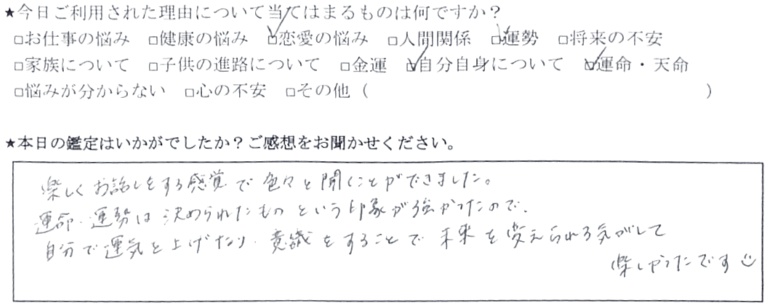 ★今日ご利用された理由について当てはまるものは何ですか？
□お仕事の悩み □健康の悩み ☑恋愛の悩み □人間関係 ☑運勢 □将来の不安
□家族について □子供の進路について □金運 ☑自分自身について ☑運命・天命
□悩みが分からない □心の不安 □その他（ ）
★本日の鑑定はいかがでしたか？ご感想をお聞かせください。
楽しくお話しをする感覚で色々と聞くことができました。
運命・運勢は決められたものという印象が強かったので、
自分で運気を上げたり、意識をすることで未来を変えられる気がして
楽しかったです☺